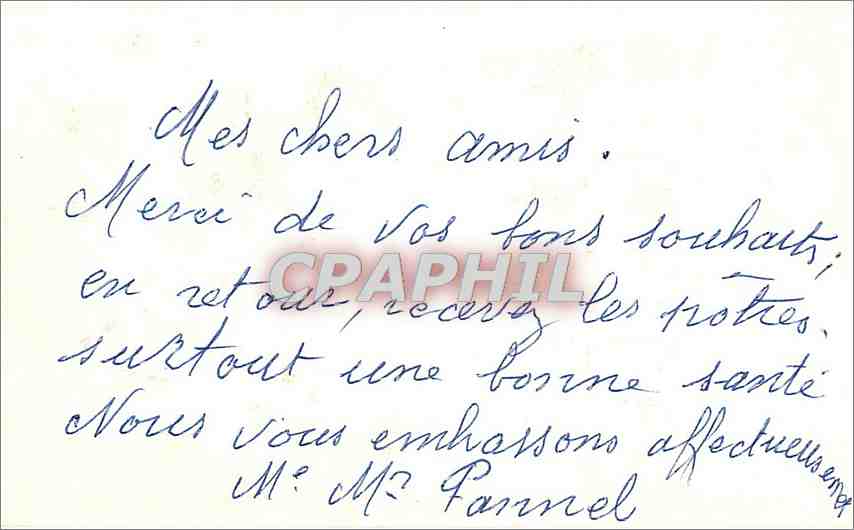 Mes chers amis.
Merci de vos bons souhaits,
CPAPHIL
en retour, recevez les nôtres.
surtout une bonne santé
Nous vous embrassons affectueusement
Me Mr Pannel